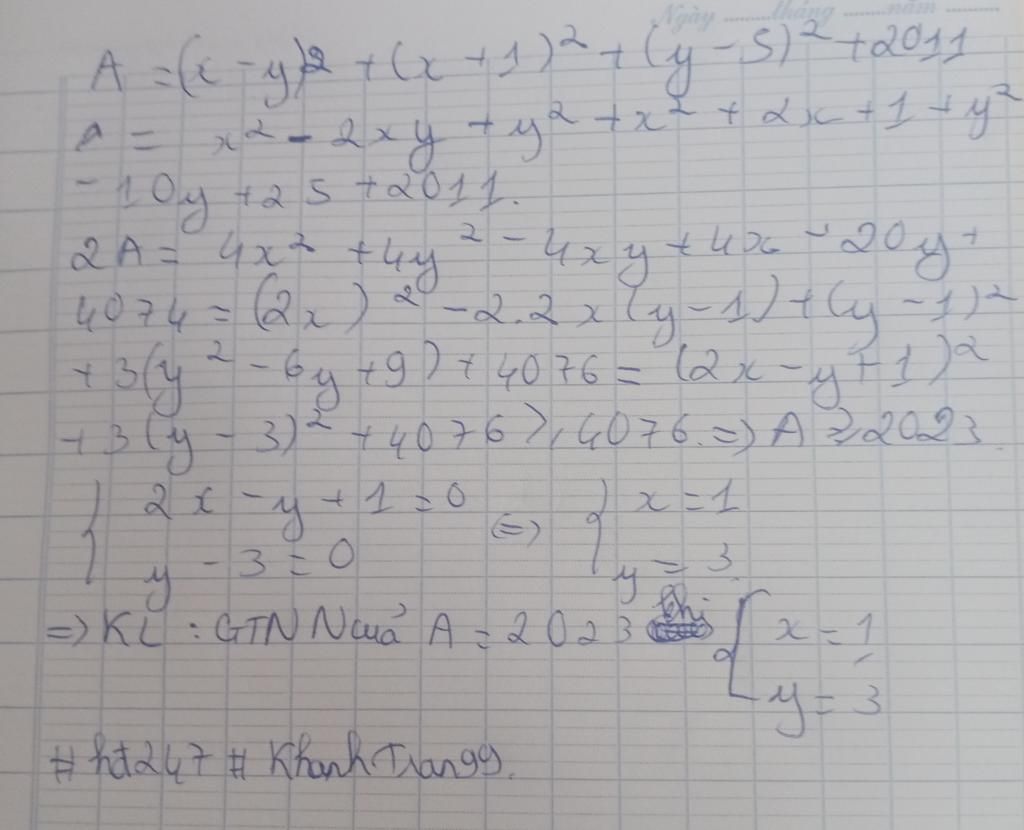 Ngày ........ tháng ........ năm ........
A = (x - y)² + (x + 1)² + (y - 5)² + 2011
A = x² - 2xy + y² + x² + 2x + 1 + y²
- 10y + 25 + 2011.
2A = 4x² + 4y² - 4xy + 4x - 20y +
4074 = (2x)² - 2.2x(y - 1) + (y - 1)²
+ 3(y² - 6y + 9) + 4076 = (2x - y + 1)²
+ 3(y - 3)² + 4076 ≥ 4076. => A ≥ 2023.
{ 2x - y + 1 = 0 <=> { x = 1
y - 3 = 0 y = 3
=> KL : GTNN của A = 2023 khi { x = 1
y = 3
# hd247 # KhanhTrang99.